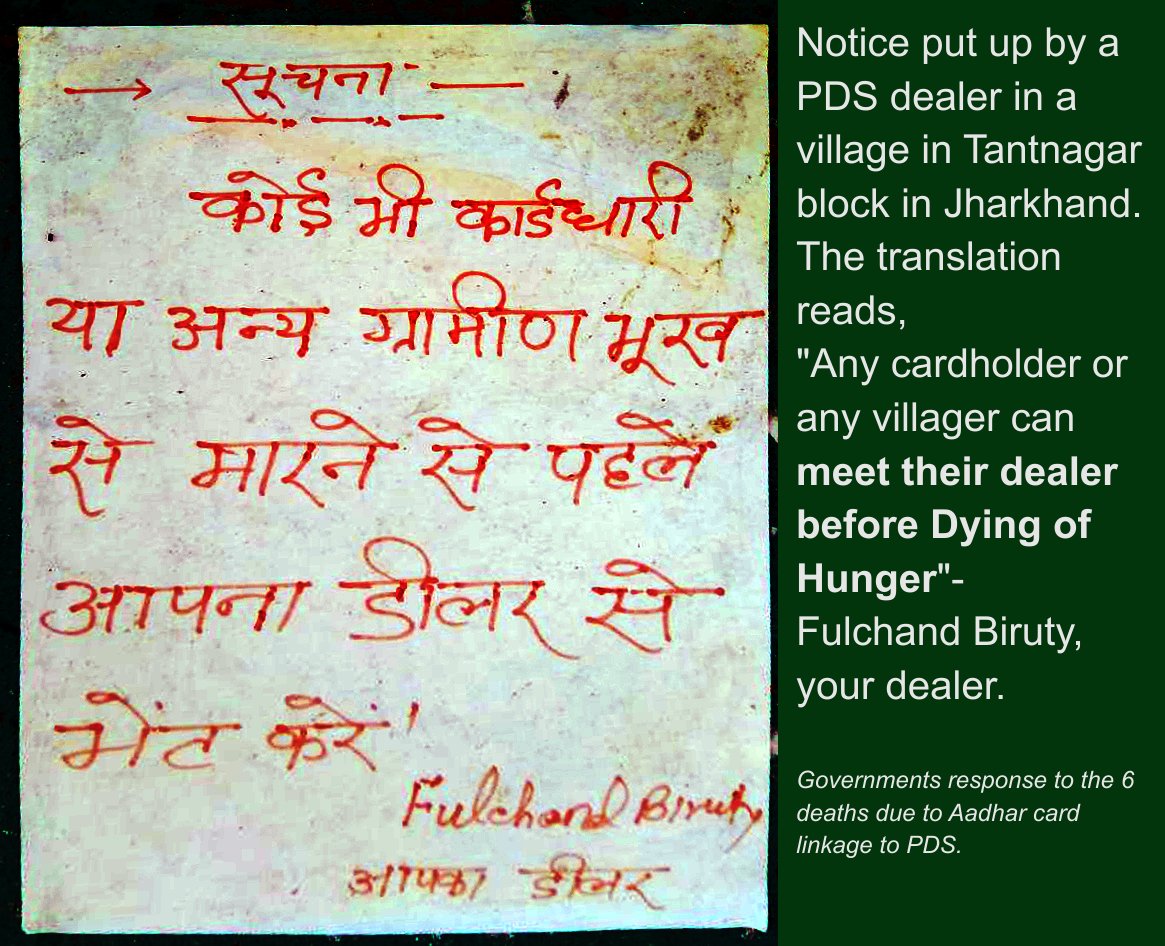 → सूचना —
कोई भी कार्डधारी
या अन्य ग्रामीण भूख
से मारने से पहले
आपना डीलर से
भेंट करें'
Fulchand Biruty
आपका डीलर
Notice put up by a
PDS dealer in a
village in Tantnagar
block in Jharkhand.
The translation
reads,
"Any cardholder or
any villager can
meet their dealer
before Dying of
Hunger"-
Fulchand Biruty,
your dealer.
Governments response to the 6
deaths due to Aadhar card
linkage to PDS.